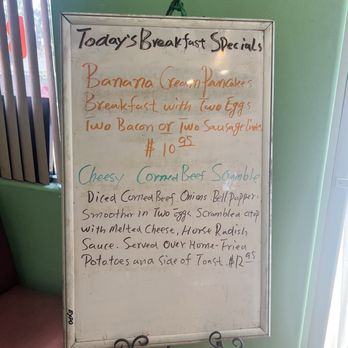 Today's Breakfast Specials
Banana Cream Pancakes
Breakfast with Two Eggs
Two Bacon or Two Sausage Links
$10 95
Cheesy Corned Beef Scramble
Diced Corned Beef Onions Bell pepper
Smoother in Two Eggs Scrambled atop
with Melted Cheese, Horse Radish
Sauce. Served over Home-Fried
Potatoes and Side of Toast. $12 95